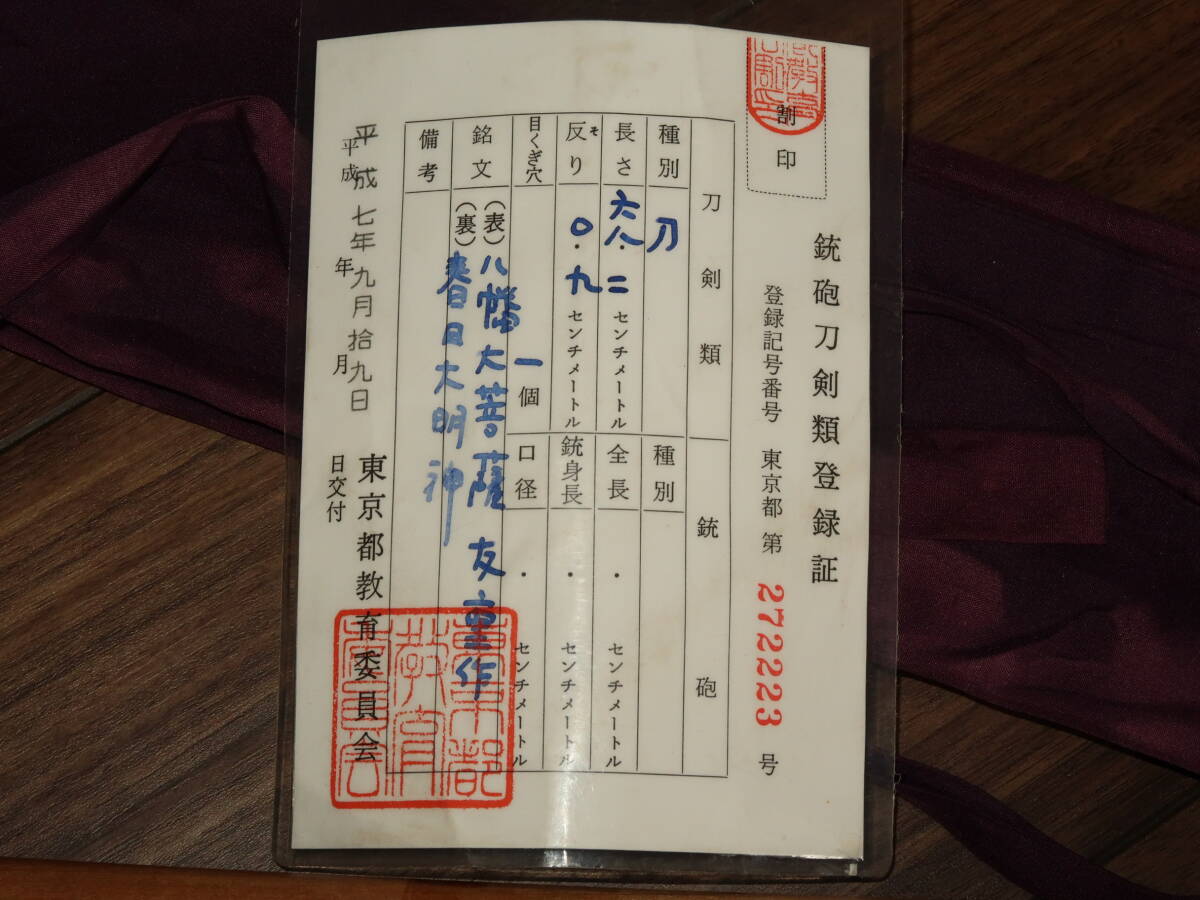 割印
銃砲刀剣類登録証
登録記号番号 東京都 第 272223 号
刀剣類
銃砲
種別 刀
長さ 六八・二 センチメートル
反り そ 〇・九 センチメートル
目くぎ穴 一個
銘文 (表) 八幡大菩薩 友重作
(裏) 春日大明神
備考
種別
全長 ・ センチメートル
銃身長 ・ センチメートル
口径 ・ センチメートル
平成七年九月拾九日
平成 年 月 日交付
東京都教育委員会
東京都教育委員会